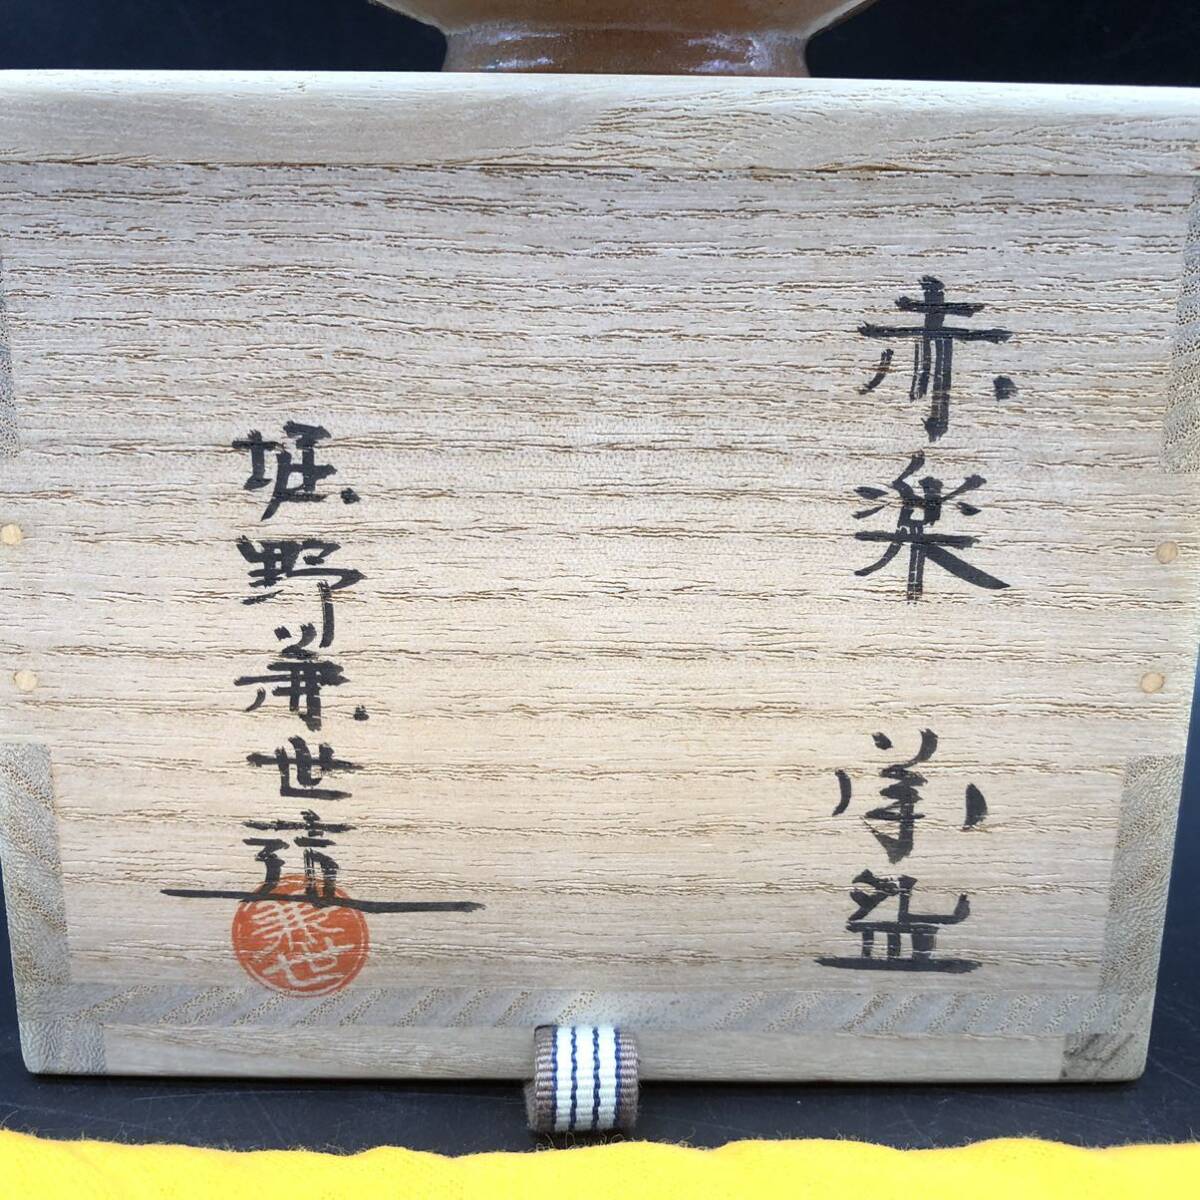 赤楽 茶盌
堀野兼世造
兼世